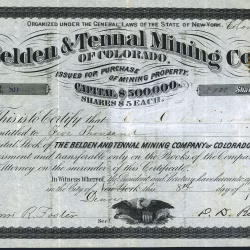 ORGANIZED UNDER THE GENERAL LAWS OF THE STATE OF NEW-YORK.
Belden & Tennal Mining Co
OF COLORADO.
ISSUED FOR PURCHASE OF MINING PROPERTY.
CAPITAL $500000.
SHARES $5 EACH.
This is to Certify that
entitled to Five Thousand
Capital Stock of THE BELDEN AND TENNAL MINING COMPANY OF COLORADO
assessment and transferable only on the Books of the Company
Attorney on surrender of this Certificate.
In Witness Whereof, the President and Secretary have hereunto
in the City of New York this 8th day of
Foster